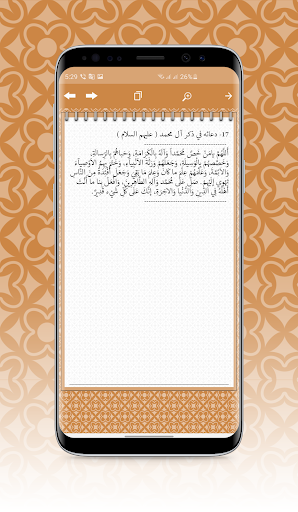 5:29
26%
17- دعائه في ذكر آل محمد ( عليهم السلام )
أَللَّهُمَّ يَامَنْ خَصَّ مُحَمَّداً وَآلَهُ بِالْكَرَامَةِ، وَحَبَاهُمْ بِالرِسَالَةِ،
وَخَصَّصَهُمْ بِالْوَسِيلَةِ، وَجَعَلَهُمْ وَرَثَةَ الأَنْبِيَاءِ، وَخَتَمَ بِهِمُ الأَوْصِيَاءَ
وَالأَئِمَّةَ، وَعَلَّمَهُمْ عِلْمَ مَا كَانَ وَعِلْمَ مَا بَقِيَ وَجَعَلَ أَفْئِدَةً مِنَ النَّاسِ
تَهْوِي إِلَيْهِمْ. صَلِّ عَلَى مُحَمَّد وَآلِهِ الطَّاهِرِينَ، وَافْعَلْ بِنَا مَا أَنْتَ
أَهْلُهُ فِي الدِّينِ وَالدُّنْيَا وَالآخِرَةِ، إِنَّكَ عَلَى كُلِّ شَيْء قَدِيرٌ.